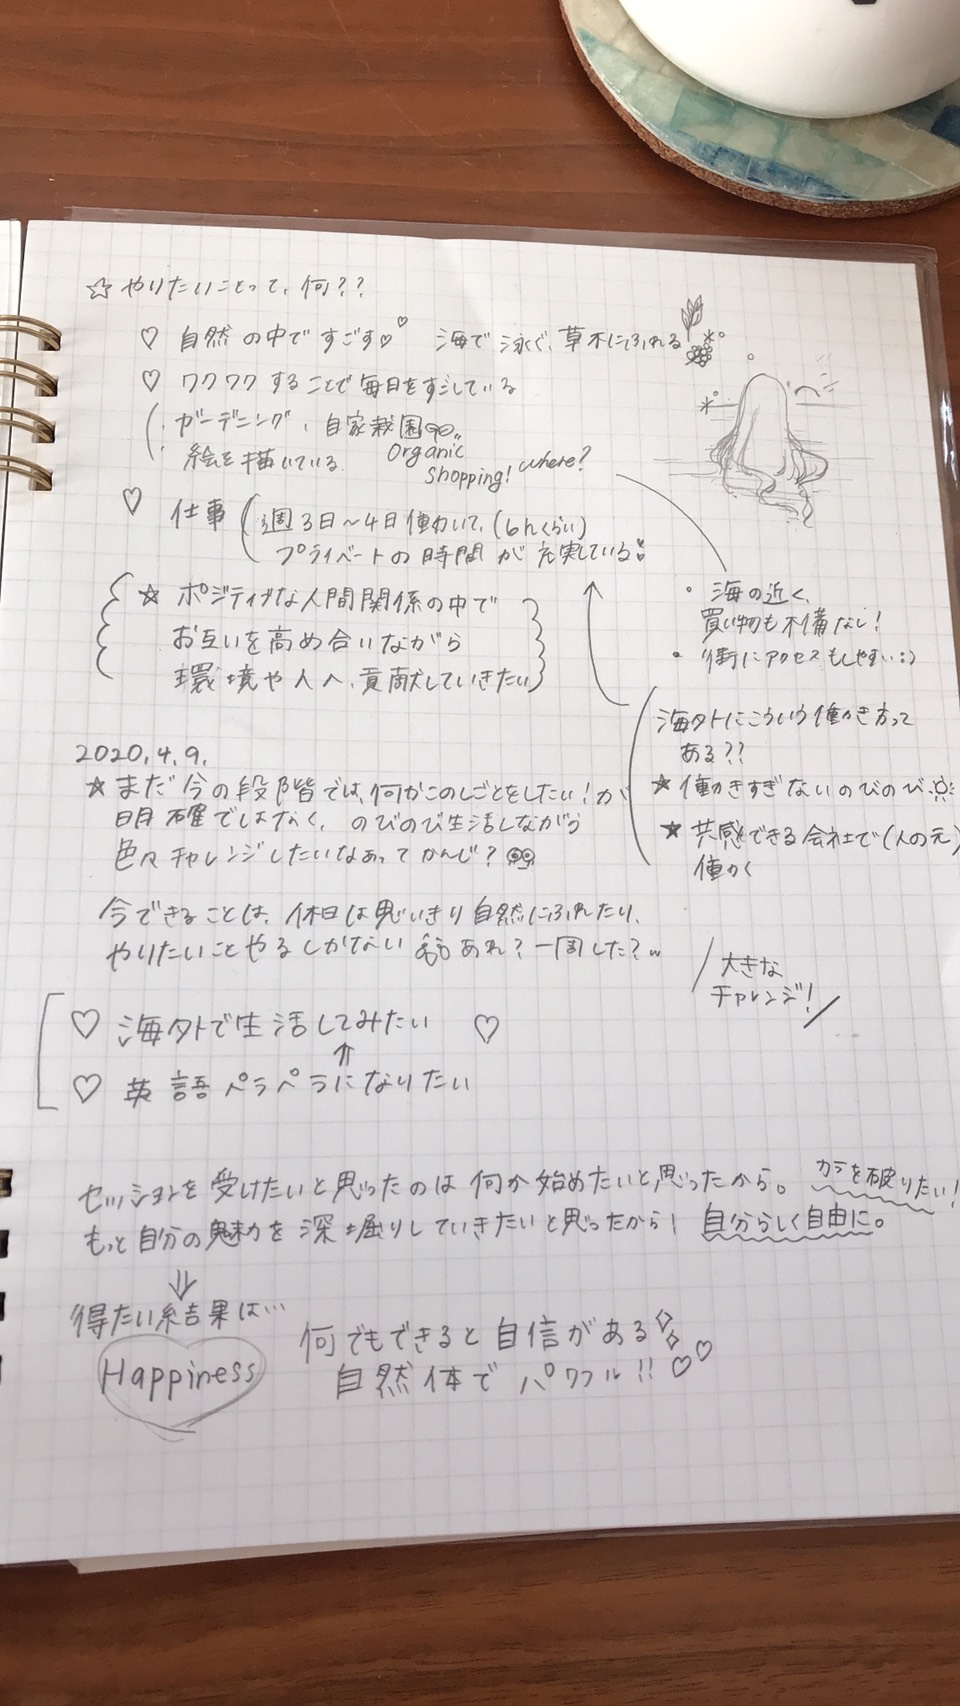 ☆やりたいことって、何??
♡ 自然の中ですごす♡♡ 海で泳ぐ、草木にふれる
♡ ワクワクすることで毎日をすごしている
ガーデニング、自家栽園
絵を描いている organic
shopping! where?
♡ 仕事 (週3日〜4日働いて、(6hくらい)
プライベートの時間が充実している
☆ ポジティブな人間関係の中で
お互いを高め合いながら
環境や人へ、貢献していきたい
・海の近く、
買い物も不備なし!
・街にアクセスもしやすい:)
海外にこういう働き方って
ある??
★働きすぎないのびのび
★共感できる会社で(人の元)
働く
2020.4.9.
☆まだ今の段階では、何かこのしごとをしたい!が
明確ではなく、のびのび生活しながら
色々チャレンジしたいなぁってかんじ?
今できることは、休日は思いきり自然にふれたり、
やりたいことやるしかない あれ?一周した?w
大きな
チャレンジ!
♡ 海外で生活してみたい ♡
↑
♡ 英語ペラペラになりたい
セッションを受けたいと思ったのは何か始めたいと思ったから。カラを破りたい!
もっと自分の魅力を深堀りしていきたいと思ったから! 自分らしく自由に。
⇓
得たい結果は…
Happiness
何でもできると自信がある
自然体でパワフル!!♡♡